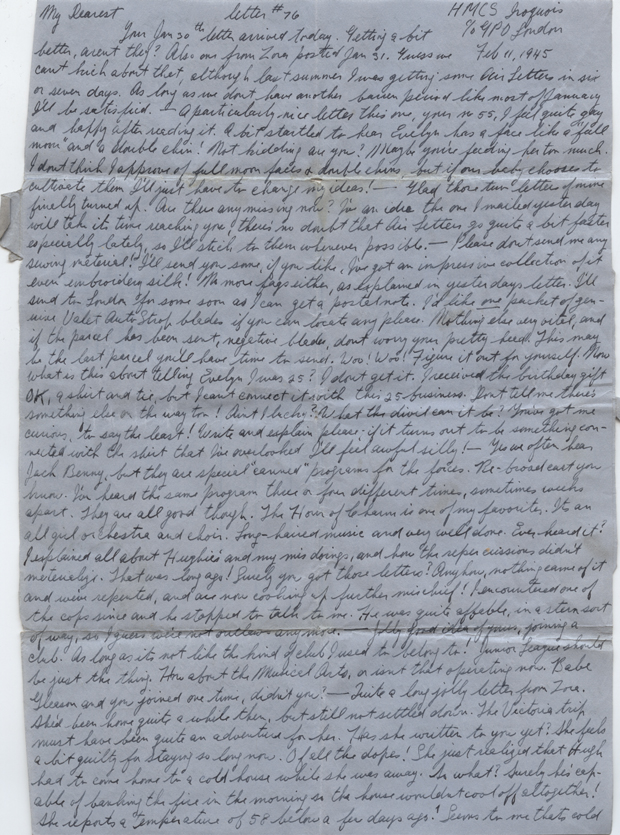 My Dearest letter #76 HMCS Iroquois
℅ GPO London
Your Jan 30th letter arrived today. Getting a bit
better, arent they? Also one from Zora posted Jan 31. Guess we Feb 11, 1945
cant kick about that, although last summer I was getting some Air Letters in six
or seven days. As long as we dont have another barren period like most of January
I'll be satisfied. — A particularly nice letter this one, your no 55, I feel quite gay
and happy after reading it. A bit startled to hear Evelyn has a face like a full
moon and a double chin! Not kidding are you? Maybe you're feeding her too much.
I dont think I approve of full moon faces & double chins, but if our baby chooses to
cultivate them I'll just have to change my ideas! — Glad those two letters of mine
finally turned up. Are there any missing now? I've an idea the one I mailed yesterday
will take its time reaching you, there's no doubt that Air Letters go quite a bit faster
especially lately, so I'll stick to them whenever possible. — Please dont send me any
sewing material! I'll send you some, if you like, I've got an impressive collection of it
even embroidery silk! No more fags either, as explained in yesterdays letter. I'll
send to London for some soon as I can get a postal note. I'd like one packet of gen-
uine Valet AutoStrop blades if you can locate any please. Nothing else very vital, and
if the parcel has been sent, negative blades, dont worry your pretty head. This may
be the last parcel you'll have time to send. Woo! Woo! Figure it out for yourself. Now
what is this about telling Evelyn I was 25? I dont get it. I received the birthday gift
OK, a shirt and tie, but I cant connect it with this 25 business. Dont tell me there's
something else on the way too! Aint I lucky? What the divil can it be? You've got me
curious, to say the least! Write and explain please - if it turns out to be something con-
nected with the shirt that I've overlooked I'll feel awful silly! — Yes we often hear
Jack Benny, but they are special "canned" programs for the forces. Re-broadcast you
know. I've heard the same program three or four different times, sometimes weeks
apart. They are all good though. The Hour of Charm is one of my favorites. Its an
all girl orchestra and choir. Long-haired music and very well done. Ever heard it?
I explained all about Hughie's and my misdoings, and how the repercussions didn't
materialize. That was long ago! Surely you got those letters? Anyhow, nothing came of it
and were repented, and are now cooking up further mischief! I encountered one of
the cops since and he stopped to talk to me. He was quite affable, in a stern sort
of way, so I guess we're not outlaws anymore. Jolly good idea of yours, joining a
club. As long as its not like the kind of club I used to belong to! Junior League should
be just the thing. How about the Musical Arts, or isn't that operating now. Babe
Gleason and you joined one time, didn't you? — Quite a long jolly letter from Zora.
She'd been home quite a while then, but still not settled down. The Victoria trip
must have been quite an adventure for her. Has she written to you yet? She feels
a bit guilty for staying so long now. Of all the dopes! She just realized that Hugh
had to come home to a cold house while she was away. So what? Surely he's cap-
able of banking the fire in the morning so the house wouldnt cool off altogether!
She reports a temperature of 58 below a few days ago! Seems to me thats cold